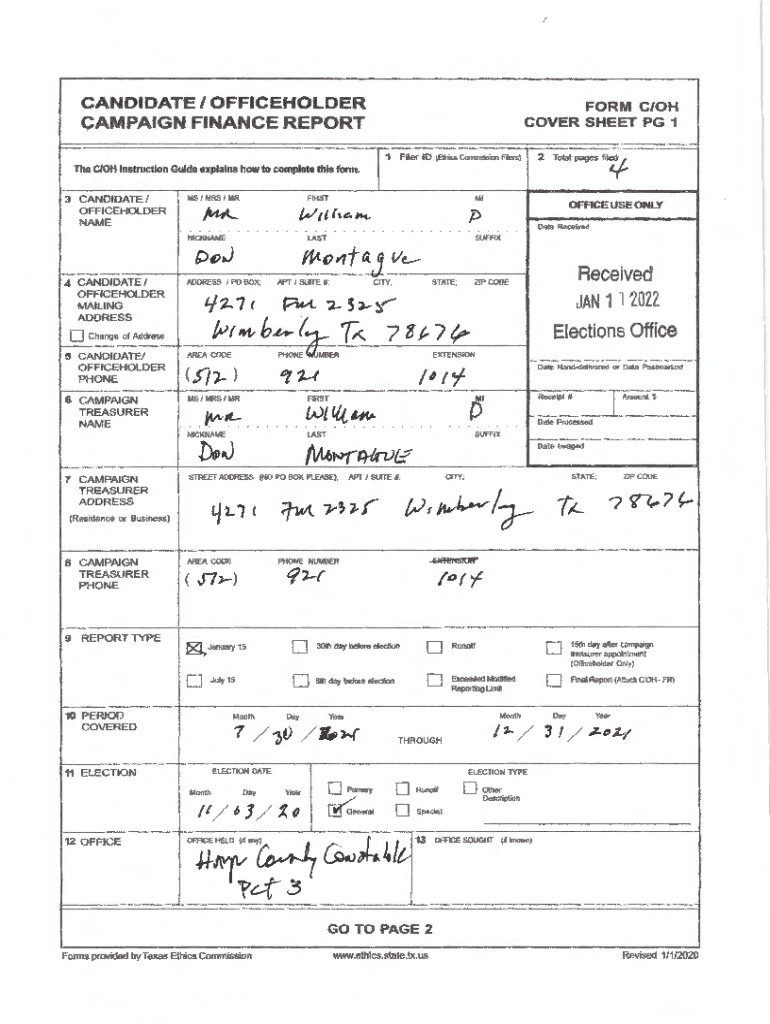 CANDIDATE / OFFICEHOLDER
CAMPAIGN FINANCE REPORT
FORM C/OH
COVER SHEET PG 1
The C/OH Instruction Guide explains how to complete this form.
1 Filer ID (Ethics Commission Filers)
2 Total pages filed:
4
3 CANDIDATE / OFFICEHOLDER NAME
MS / MRS / MR FIRST MI
MR William D
NICKNAME LAST SUFFIX
Don Montague
OFFICE USE ONLY
Date Received
Received
JAN 11 2022
Elections Office
4 CANDIDATE / OFFICEHOLDER MAILING ADDRESS
Change of Address
ADDRESS / PO BOX; APT / SUITE #; CITY; STATE; ZIP CODE
4271 FM 2325
Wimberley Tx 78676
5 CANDIDATE/ OFFICEHOLDER PHONE
AREA CODE PHONE NUMBER EXTENSION
(512) 921 1014
Date Hand-delivered or Date Postmarked
Receipt # Amount $
Date Processed
Date Imaged
6 CAMPAIGN TREASURER NAME
MS / MRS / MR FIRST MI
MR William D
NICKNAME LAST SUFFIX
Don MONTAGUE
7 CAMPAIGN TREASURER ADDRESS
(Residence or Business)
STREET ADDRESS (NO PO BOX PLEASE); APT / SUITE #; CITY; STATE; ZIP CODE
4271 FM 2325 Wimberley Tx 78676
8 CAMPAIGN TREASURER PHONE
AREA CODE PHONE NUMBER EXTENSION
(512) 921 1014
9 REPORT TYPE
January 15 30th day before election Runoff 15th day after campaign treasurer appointment (Officeholder Only)
July 15 8th day before election Exceeded Modified Reporting Limit Final Report (Attach C/OH - FR)
10 PERIOD COVERED
Month Day Year Month Day Year
7 / 30 / 2021 THROUGH 12 / 31 / 2021
11 ELECTION
ELECTION DATE ELECTION TYPE
Month Day Year
11 / 03 / 20
Primary Runoff Other Description
General Special
12 OFFICE
OFFICE HELD (if any)
Hays County Constable
Pct 3
13 OFFICE SOUGHT (if known)
GO TO PAGE 2
Forms provided by Texas Ethics Commission www.ethics.state.tx.us Revised 1/1/2020